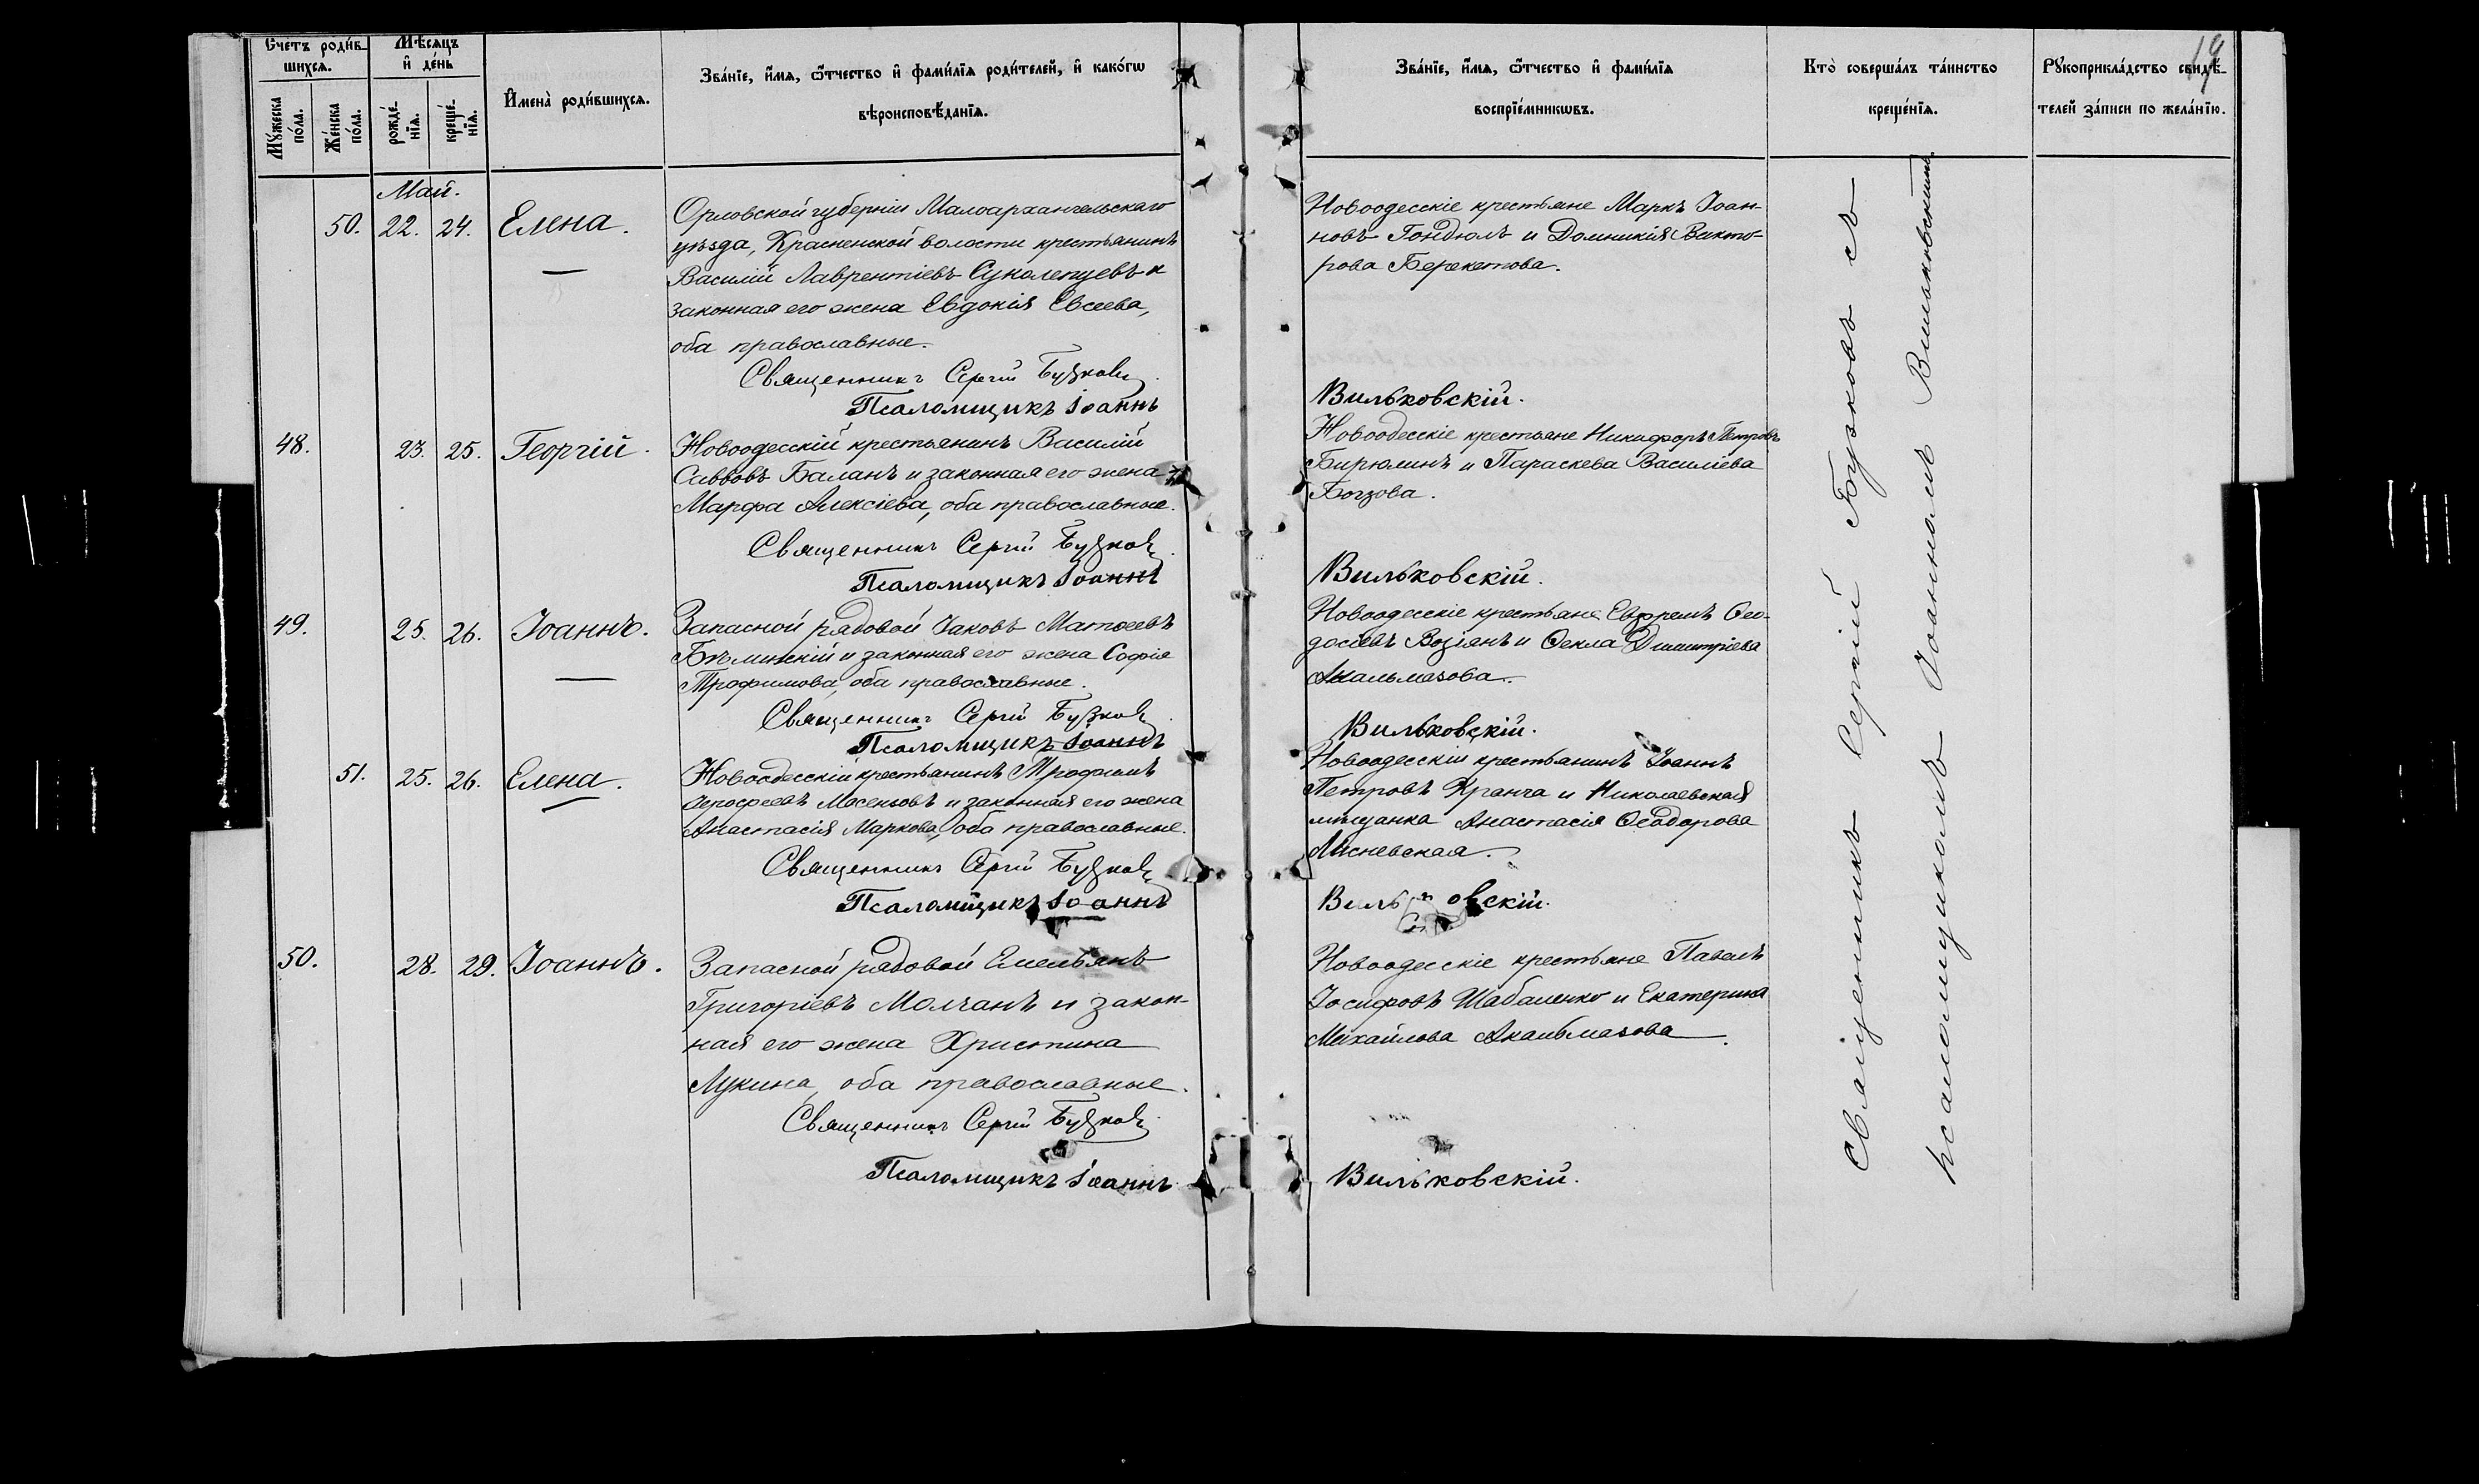 19
Счетъ родив-
шихся.
Мѣсяцъ
и день
Мужеска
пола.
Женска
пола.
рожде-
нія.
креще-
нія.
Имена родившихся.
Званіе, имя, ѿтчество и фамилія родителей, и какогѡ
вѣроисповѣданія.
Званіе, имя, ѿтчество и фамилія
воспріемникѡвъ.
Кто совершалъ таинство
крещенія.
Рукоприкладство свидѣ-
телей записи по желанію.
Май.
50. 22. 24. Елена.
Орловской губерніи Малоархангельскаго
уѣзда, Красненской волости крестьянинъ
Василій Лаврентіевъ и
законная его жена Евдокія Евсеева,
оба православные.
Священникъ Сергій Бузковъ
Псаломщикъ Іоаннъ
Новоодесскіе крестьяне Маркъ Іоан-
новъ Гондюлъ и Домникія Викто-
рова Берекетова.
Вильковскій.
48. 23. 25. Георгій.
Новоодесскій крестьянинъ Василій
Саввовъ Баланъ и законная его жена
Марфа Алексіева, оба православные.
Священникъ Сергій Бузковъ
Псаломщикъ Іоаннъ
Новоодесскіе крестьяне Никифоръ Петровъ
Бирюлинъ и Параскева Василіева
Богзова.
Вильковскій.
49. 25. 26. Іоаннъ.
Запасной рядовой Іаковъ Матѳеевъ
и законная его жена Софія
Трофимова, оба православные.
Священникъ Сергій Бузковъ
Псаломщикъ Іоаннъ
Новоодесскіе крестьяне Евфремъ Ѳео-
досіевъ Возіянъ и Ѳекла Димитріева
Акальмазова.
Вильковскій.
51. 25. 26. Елена.
Новоодесскій крестьянинъ Трофимъ
и законная его жена
Анастасія Маркова, оба православные.
Священникъ Сергій Бузковъ
Псаломщикъ Іоаннъ
Новоодесскій крестьянинъ Іоаннъ
Петровъ Кранга и Николаевская
мѣщанка Анастасія Ѳеодорова
Лисневская.
Вильковскій.
50. 28. 29. Іоаннъ.
Запасной рядовой Емельянъ
Григоріевъ Молчанъ и закон-
ная его жена Христина
Лукина, оба православные.
Священникъ Сергій Бузковъ
Псаломщикъ Іоаннъ
Новоодесскіе крестьяне Павелъ
Іосифовъ Шабаленко и Екатерина
Михайлова Акальмазова.
Вильковскій.
Священникъ Сергій Бузковъ съ
псаломщикомъ Іоанномъ Вильковскимъ.